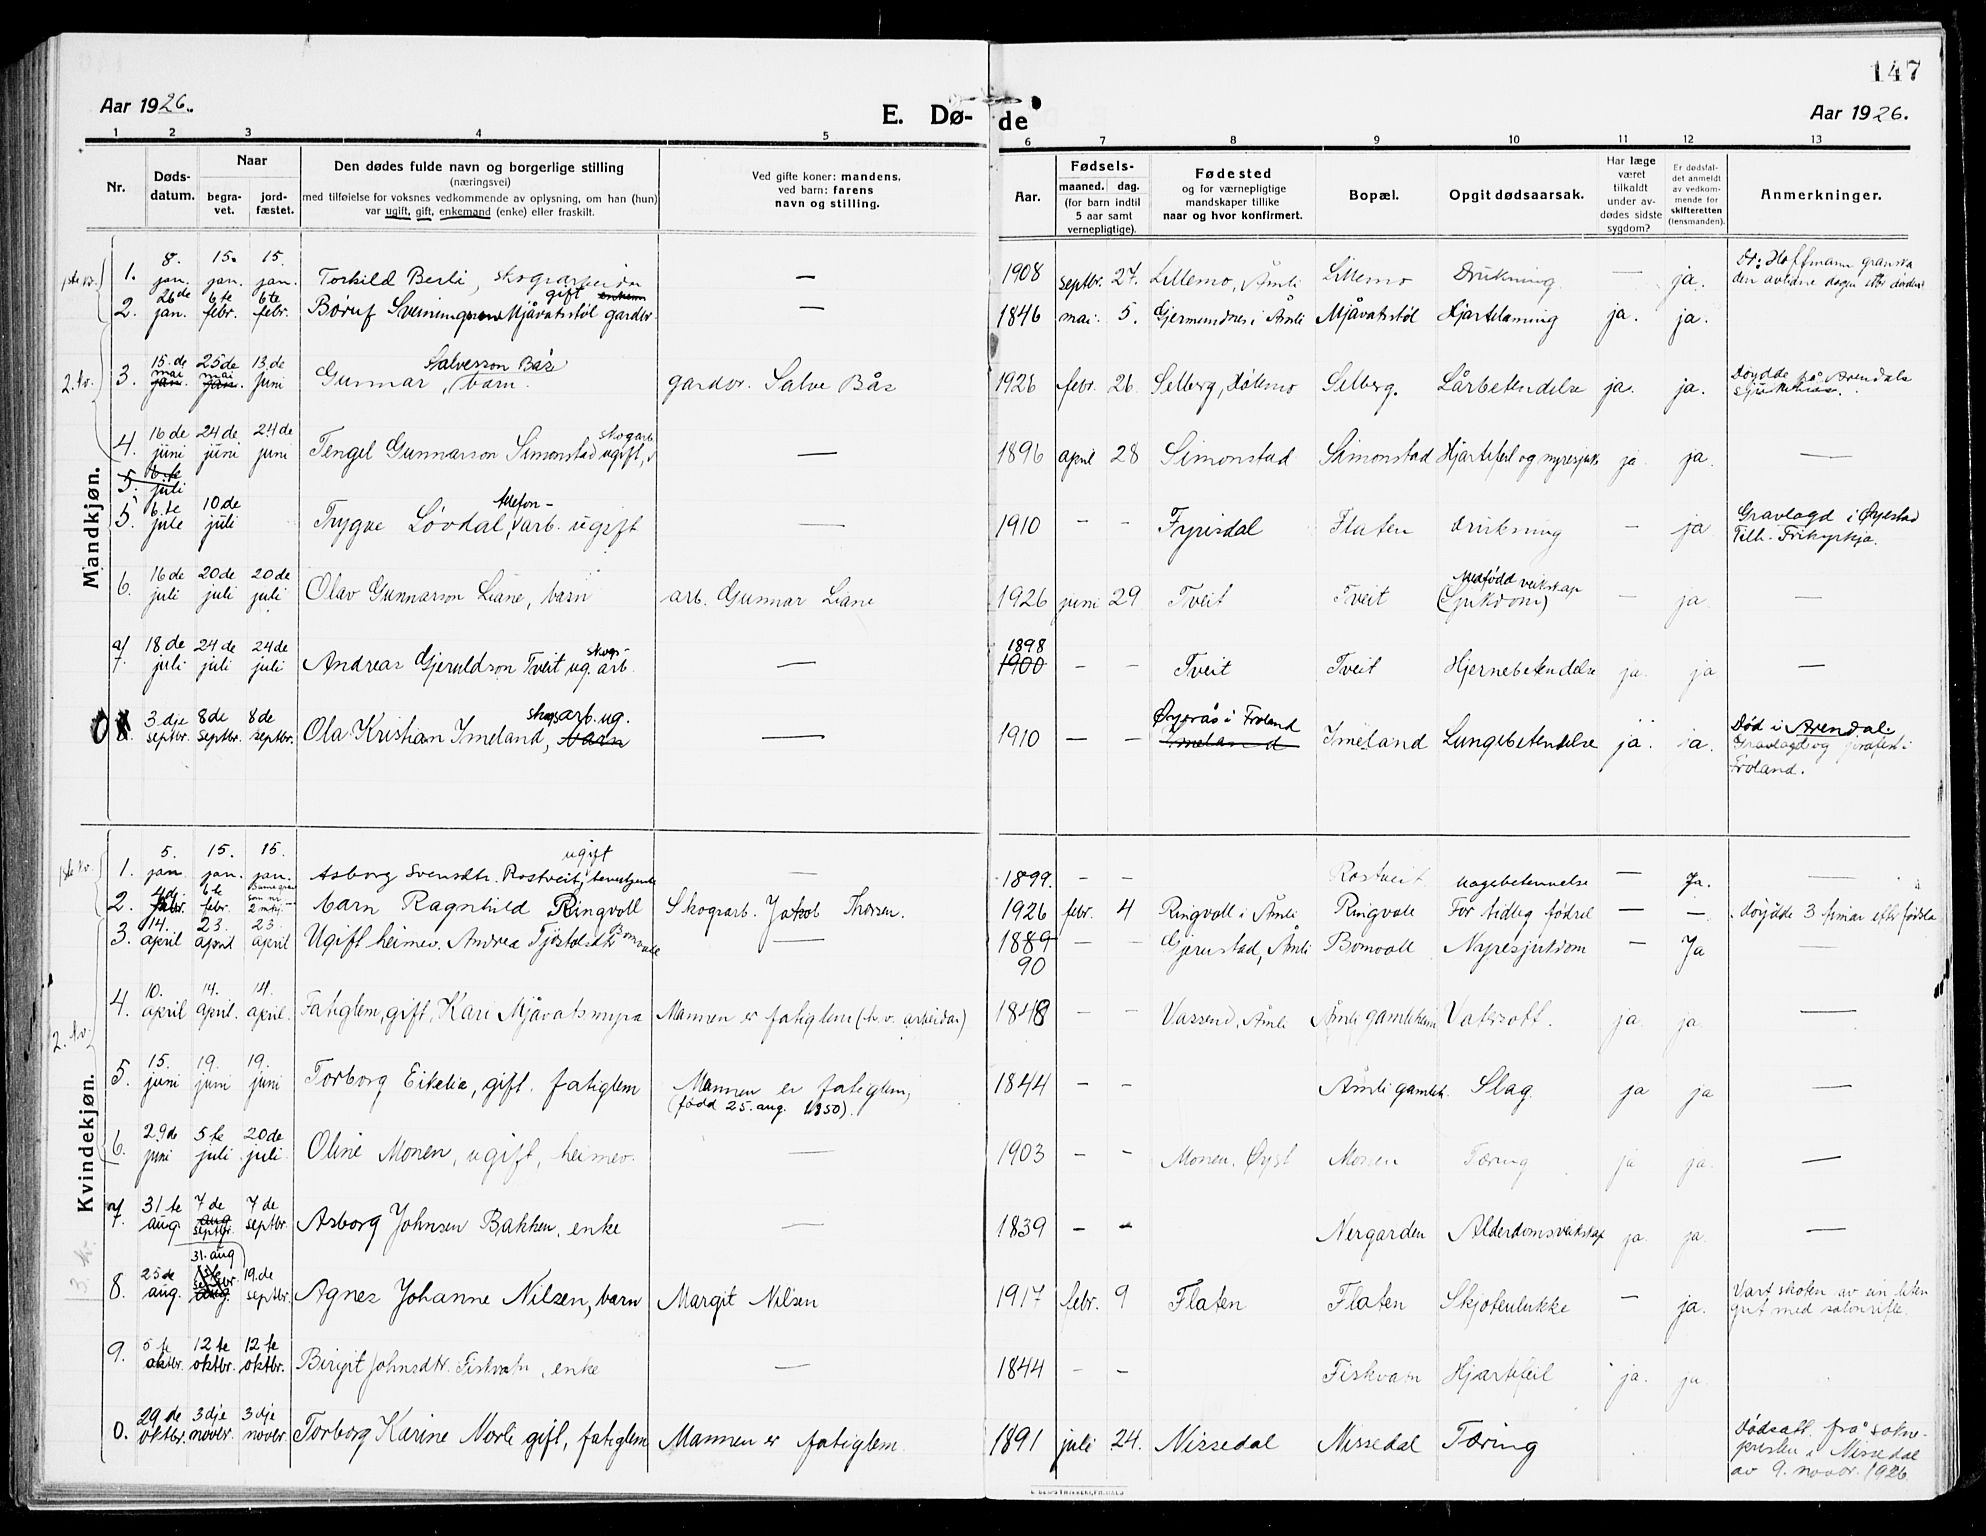 147
Aar 1926.
E. Dø-
de
Aar 1926.
1 2 3 4 5 6 7 8 9 10 11 12 13
Nr.
Døds-
datum.
Naar
begra-
vet.
jord-
fæstet.
Den dødes fulde navn og borgerlige stilling
(næringsvei)
med tilføielse for voksnes vedkommende av oplysning, om han (hun)
var ugift, gift, enkemand (enke) eller fraskilt.
Ved gifte koner: mandens,
ved barn: farens
navn og stilling.
Aar.
Fødsels-
maaned. dag.
(for barn indtil
5 aar samt
vernepligtige).
Fødested
og for værnepligtige
mandskaper tillike
naar og hvor konfirmert.
Bopæl.
Opgit dødsaarsak.
Har læge
været
tilkaldt
under av-
dødes sidste
sygdom?
Er dødsfal-
det anmeldt
av vedkom-
mende for
skifteretten
(lensmanden).
Anmerkninger.
Mandkjøn.
1. 8. jan. 15. jan. 15. jan. Torhild Berli, skogarbeider — 1908 septbr. 27. Lillemo, Åmli Lillemo Drukning — ja. Dr. Hoffmann
2. 26de jan. 6te febr. 6te febr. Mjåvatstøl gift gardbr. — 1846 mai 5. i Åmli Mjåvatstøl Hjartelaming ja. ja.
3. 15.de mai 25de mai 13.de juni Gunnar Salvesson Bås, barn. gardbr. Salve Bås 1926 febr. 26 Selberg, Selberg. ja. ja. Døydde på Arendals sjukehus.
4. 16de juni 24de juni 24de juni Tengel Gunnarson Simonstad skogarb. ugift, — 1896 april 28 Simonstad Simonstad Hjartefeil og nyresjuk ja. ja. —
5. 6.te juli
5. 6.te jule 10de juli Trygve Løvdal, telefon-arb. ugift — 1910 - - Fyrisdal Flaten drukning - ja Gravlagd i Øyestad Tilh. Frikyrkja.
6. 16de juli 20de juli 20de juli Olav Gunnarson Liane, barn arb. Gunnar Liane 1926 juni 29 Tveit Tveit Medfødd veikskap (Sjukdom) - ja —
7. 18de juli 24de juli 24de juli Andreas Gjeruldson Tveit ug. skogs-arb. — 1898 1900 - - Tveit Tveit Hjernebetendelse ja. ja —
8. 3dje septbr. 8de septbr. 8de septbr. Ola Kristian Imeland, skogsarb. ug. barn — 1910 — — i Froland Imeland Imeland Lungebetendelse ja. ja. Død i Arendal. Gravlagd og i Froland.
Kvindekjøn.
1. 5. jan. 15. jan. 15. jan. Asborg Svensdtr. Rostveit, ugift — 1899. - - Rostveit — Ja. —
2. 4de febr. 6te febr. barn Ragnhild Ringvoll Skogarb. Jakob Thorsen. 1926 febr. 4 Ringvoll i Åmli Ringvoll For tidleg fødsel — — døydde 3 timar efter fødsla
3. 14. april 23. april 23. april Ugift heimev. Andrea Bomvoll — 1889 90 - - Gjerustad, Åmli Bomvoll Nyresjukdom — Ja —
4. 10. april 14. april. 14. april. Fatiglem, gift, Kari Mjåvatsmyra Mannen er fatiglem (h.v. arbeidar) 1848 - - Vassend, Åmli Åmli gamleheim Vatersott. ja. ja. —
5. 15. juni 19. juni 19. juni Torborg Eitelia, gift. fatiglem Mannen er fatiglem, (fødd 25. aug. 1850). 1844 - - Åmli gamleh. Slag ja ja —
6. 29de juni 5te juli 20de juli. Oline Monen, ugift, heimev. — 1903 - - Monen, Monen Tæring ja ja. —
7. 31te aug. 7de aug septbr. 7de septbr. Asborg Johnsen Bakken, enke — 1839 - - Nergarden Alderdomsveikskap ja. ja. —
8. 25de aug. 31. aug 19.de septbr. Agnes Johanne Nilsen, barn Margit Nilsen 1917 febr. 9 Flaten Flaten Skjoteulukke — ja. Vart skoten av ein liten gut med salonrifle.
9. 5te oktbr. 12te oktbr. 12te oktbr. Birgit Johnsdtr. Fiskvatn, enke — 1844 - - Fiskvatn Hjartefeil ja. ja.
0. 29de oktbr. 3dje novbr. 3dje novbr. Torborg Karine Norli gift, fatiglem Mannen er fatiglem. 1891 juli 24. Nissedal Nissedal Tæring Dødsatt. frå sokne-presten i Nissedal av 9. novbr. 1926